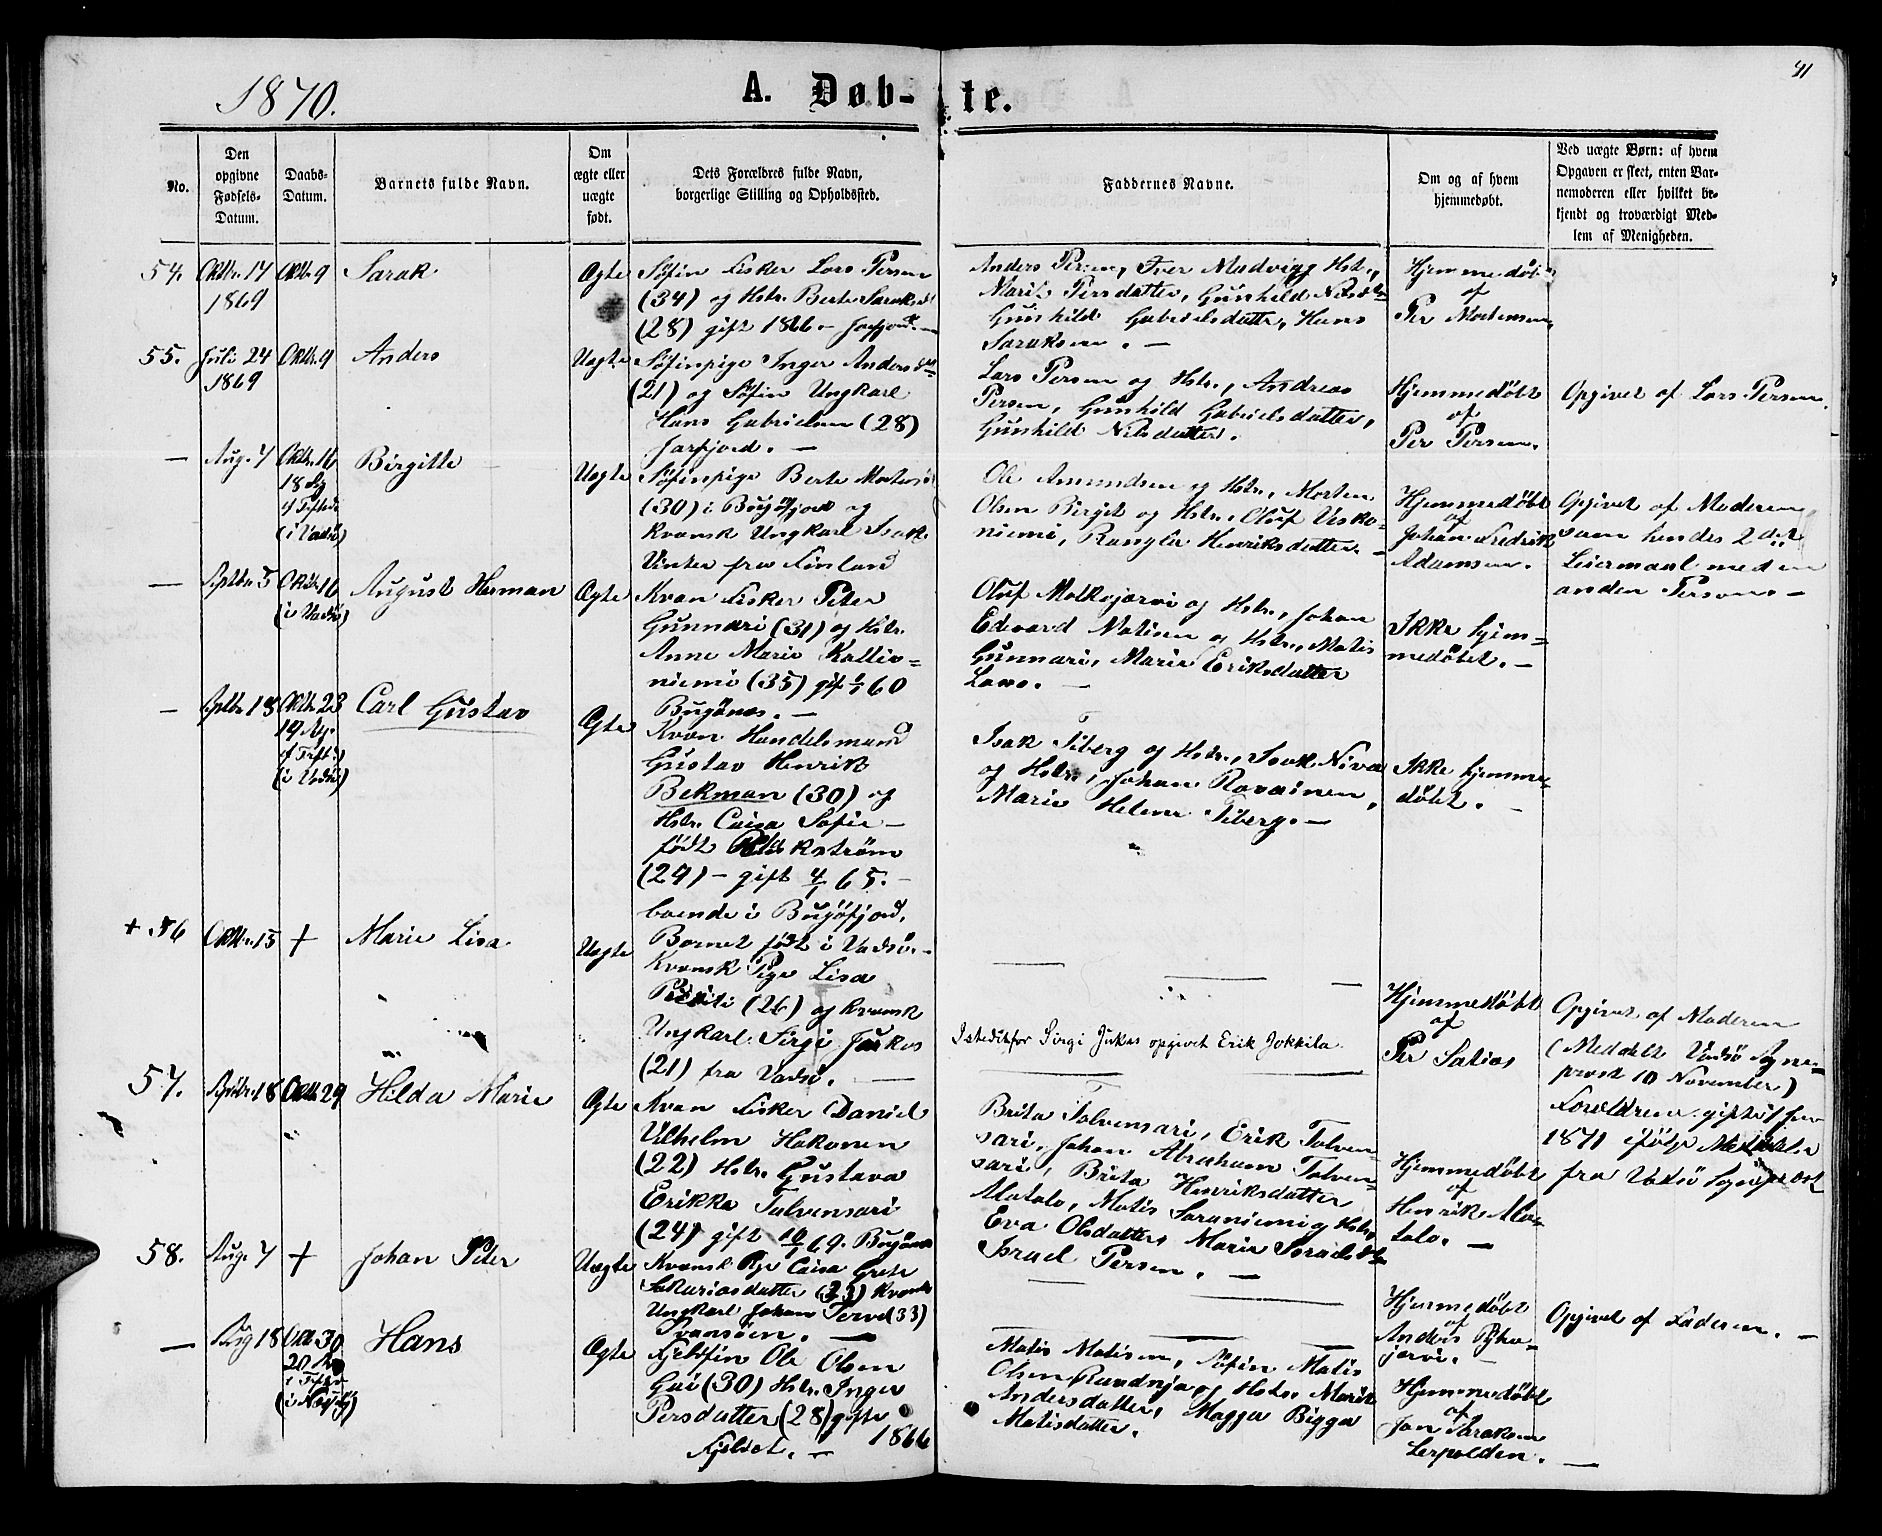 1870.
A. Døb-te.
41
No.
Den opgivne Fødsels-Datum.
Daabs-Datum.
Barnets fulde Navn.
Om ægte eller uægte født.
Dets Forældres fulde Navn, borgerlige Stilling og Opholdssted.
Faddernes Navne.
Om og af hvem hjemmedøbt.
Ved uægte Børn: af hvem Opgaven er skeet, enten Barnemoderen eller hvilket bekjendt og troværdigt Medlem af Menigheden.
54.
Oktbr. 17
1869
Oktbr 9
Sarak
Ægte
Søfin Fisker Lars Persen
(34) og Hstr. Berte Saraksdtr
(28) gift 1866 – Jarfjord. –
Anders Persen, Iver Madvigg Hstr.,
Marit Persdatter, Gunhild Nilsdtr
Gunhild Gabrielsdatter, Hans
Saraksen. –
Hjemmedøbt
af
Per Mortensen.
55.
Juli 24
1869
Oktbr. 9
Anders
Uægte
Søfinpige Inger Andersdtr
(21) og Søfin Ungkarl
Hans Gabrielsen (28)
Jarfjord. –
Lars Persen og Hstr., Andreas
Persen, Gunhild Gabrielsdatter,
Gunhild Nilsdatter.
Hjemmedøbt
af
Per Persen.
Opgivet af Lars Persen.
–
Aug. 7
Oktbr. 16
(i Vadsø)
Birgitte
Uægte
Søfinpige Berte Mortensd
(30) i Bugøfjord og
Kvænsk Ungkarl Isak
Vinter fra Finland
Ole Amundsen og Hstr., Morten
Olsen Birget og Hstr., Oluf Vesko-
niemi, Rangla Henriksdatter. –
Hjemmedøbt
af
Johan Fredrik
Adamsen.
Opgivet af Moderen
som hendes 2det
Leiermaal med en
anden Person. –
–
Septbr. 5
Oktbr. 16
(i Vadsø)
August Herman
Ægte
Kvæn Fisker Peter
Gunnari (31) og Hstr.
Anne Marie Kallio-
niemi (35) gift 60
Bugønæs. –
Oluf Molkojærvi og Hstr., Johan
Edvard Matisen og Hstr., Matis
Gunnari, Marie Eriksdatter
Lano. –
Ikke hjem-
medøbt. –
–
Septbr. 18
Oktbr. 23
(i Vadsø)
Carl Gustav
Ægte
Kvæn Handelsmand
Gustav Henrik
Bekman (30) og
Hstr. Caisa Sofie
født
(29) – gift 4/1 65. –
boende i Bugøfjord.
Barnet født i Vadsø. –
Isak Tiberg og Hstr., Isak Niva
og Hstr., Johan Rovainen,
Marie Helene Tiberg. –
Ikke hjemme-
døbt. –
+ 56
Oktbr. 15
+
Marie Lisa
Uægte
Kvænsk Pige Lisa
(26) og Kvænsk
Ungkarl Sirgi Jukas
(21) fra Vadsø. –
Istedetfor Sirgi Jukas opgivet Erik Jokkila
Hjemmedøbt
af
Per Salios
Opgivet af Moderen
(Meddelt Vadsø Sogne-
prest 10 November)
Forældrene gifte 1 Jan
1871 ifølge Meddelelse
fra Vadsø Sogneprest
57.
Septbr. 18
Oktbr. 29
Hilda Marie
Ægte
Kvæn Fisker Daniel
Vilhelm Hakonen
(22) Hstr. Gustava
Erikka Talvensari
(24) gift 69. Bugønæs
Brita Talvensari, Erik Talven-
sari, Johan Abraham Talven-
sari, Brita Henriksdatter
Matalo, Matis Saraniemi og Hstr.,
Eva Olsdatter, Marie Israelsdtr
Israel Persen. –
Hjemmedøbt
af
Henrik Ma-
talo. –
58.
Aug. 7
+
Johan Peter
Uægte
Kvænsk Pige Caisa Grete
Sakariasdatter (23) Kvænsk
Ungkarl Johan Terve (33)
Svanøen. –
Hjemmedøbt
af
Anders Pyha-
jærvi. –
Opgivet af Faderen. –
–
Aug 18
Oktbr 30
Hans
Ægte
Fjeldfin Ole Olsen
Gai (30) Hstr. Inger
Persdatter (28) gifte
1866
Fjeldet. –
Matis Matisen, Søfin Matis
Olsen Randnja og Hstr. Marit
Andersdatter, Magga Bigga
Matisdatter.
Hjemmedøbt
af
Jan Saraksen
Lerpolden. –